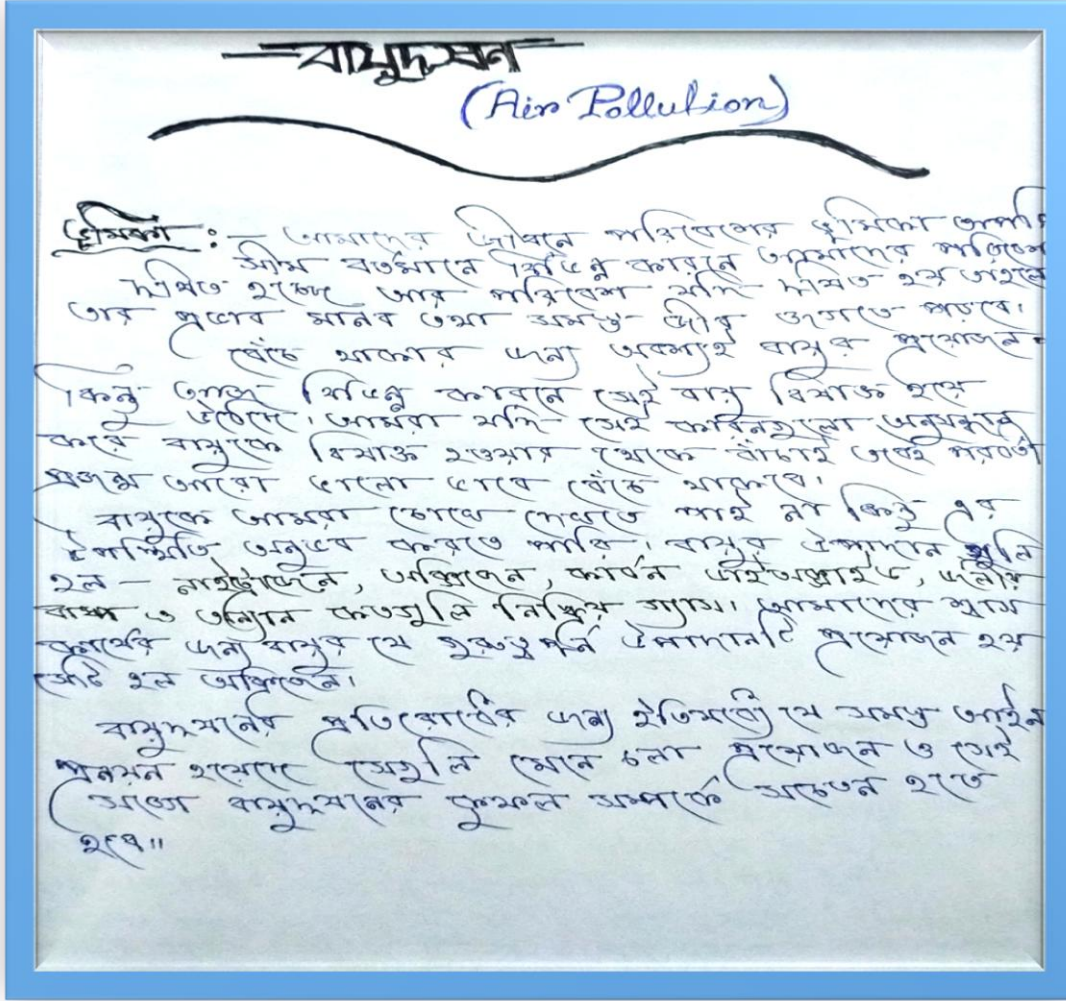 বায়ুদূষন
(Air Pollution)
ভূমিকা :- আমাদের জীবনে পরিবেশের ভূমিকা অপরি
সীম বর্তমানে বিভিন্ন কারনে আমাদের পরিবেশ
দূষিত হচ্ছে আর পরিবেশ যদি দূষিত হয় তাহলে
তার প্রভাব মানব তথা সমস্ত জীব জগতে পড়বে।
বেঁচে থাকার জন্য অবশ্যই বায়ুর প্রয়োজন
কিন্তু আজ বিভিন্ন কারনে সেই বায়ু বিষাক্ত হয়ে
উঠেছে। আমরা যদি সেই কারনগুলো অনুসন্ধান
করে বায়ুকে বিষাক্ত হওয়ার থেকে বাঁচাই তবেই পরবর্তী
প্রজন্ম আরো ভালো ভাবে বেঁচে থাকবে।
বায়ুকে আমরা চোখে দেখতে পাই না কিন্তু এর
উপস্থিতি অনুভব করতে পারি। বায়ুর উপাদান গুলি
হল - নাইট্রোজেন, অক্সিজেন, কার্বন ডাইঅক্সাইড, জলীয়
বাষ্প ও অন্যান কতগুলি নিষ্ক্রিয় গ্যাস। আমাদের শ্বাস
কার্যের জন্য বায়ুর যে গুরুত্বপূর্ন উপাদানটি প্রয়োজন হয়
সেটি হল অক্সিজেন।
বায়ুদূষনের প্রতিরোধের জন্য ইতিমধ্যে যে সমস্ত আইন
প্রনয়ন হয়েছে সেগুলি মেনে চলা প্রয়োজন ও সেই
সাথে বায়ুদূষনের কুফল সম্পর্কে সচেতন হতে
হবে॥